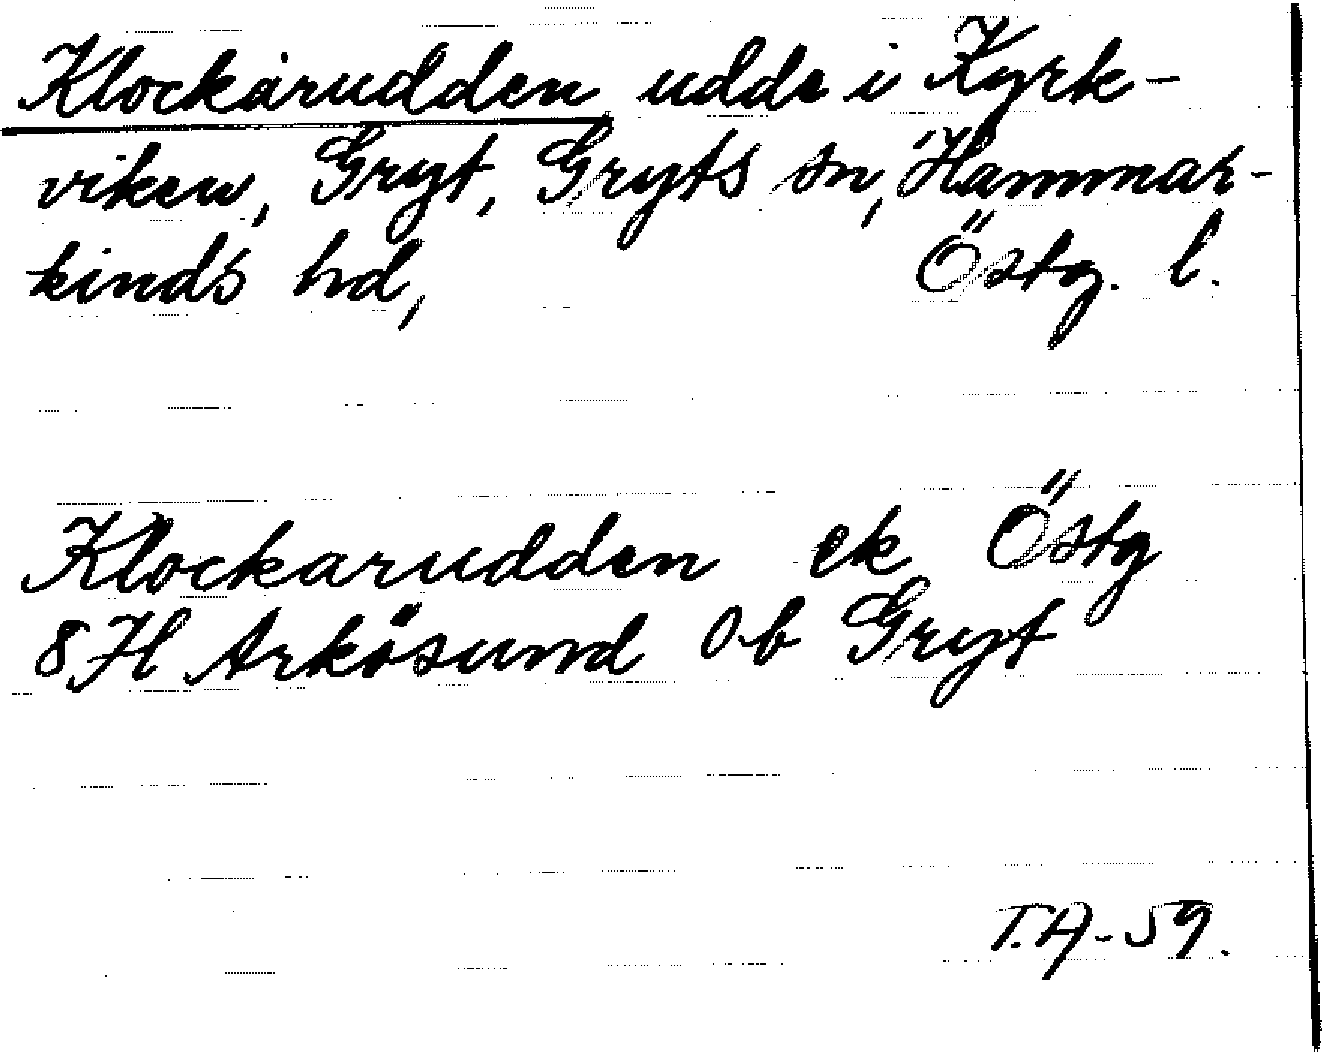 Klockarudden udde i Kyrk-
viken, Gryt, Gryts sn, Hammar-
kinds hd, Östg. l.
Klockarudden ek Östg
8H Arkösund Ob Gryt
T.A-59.